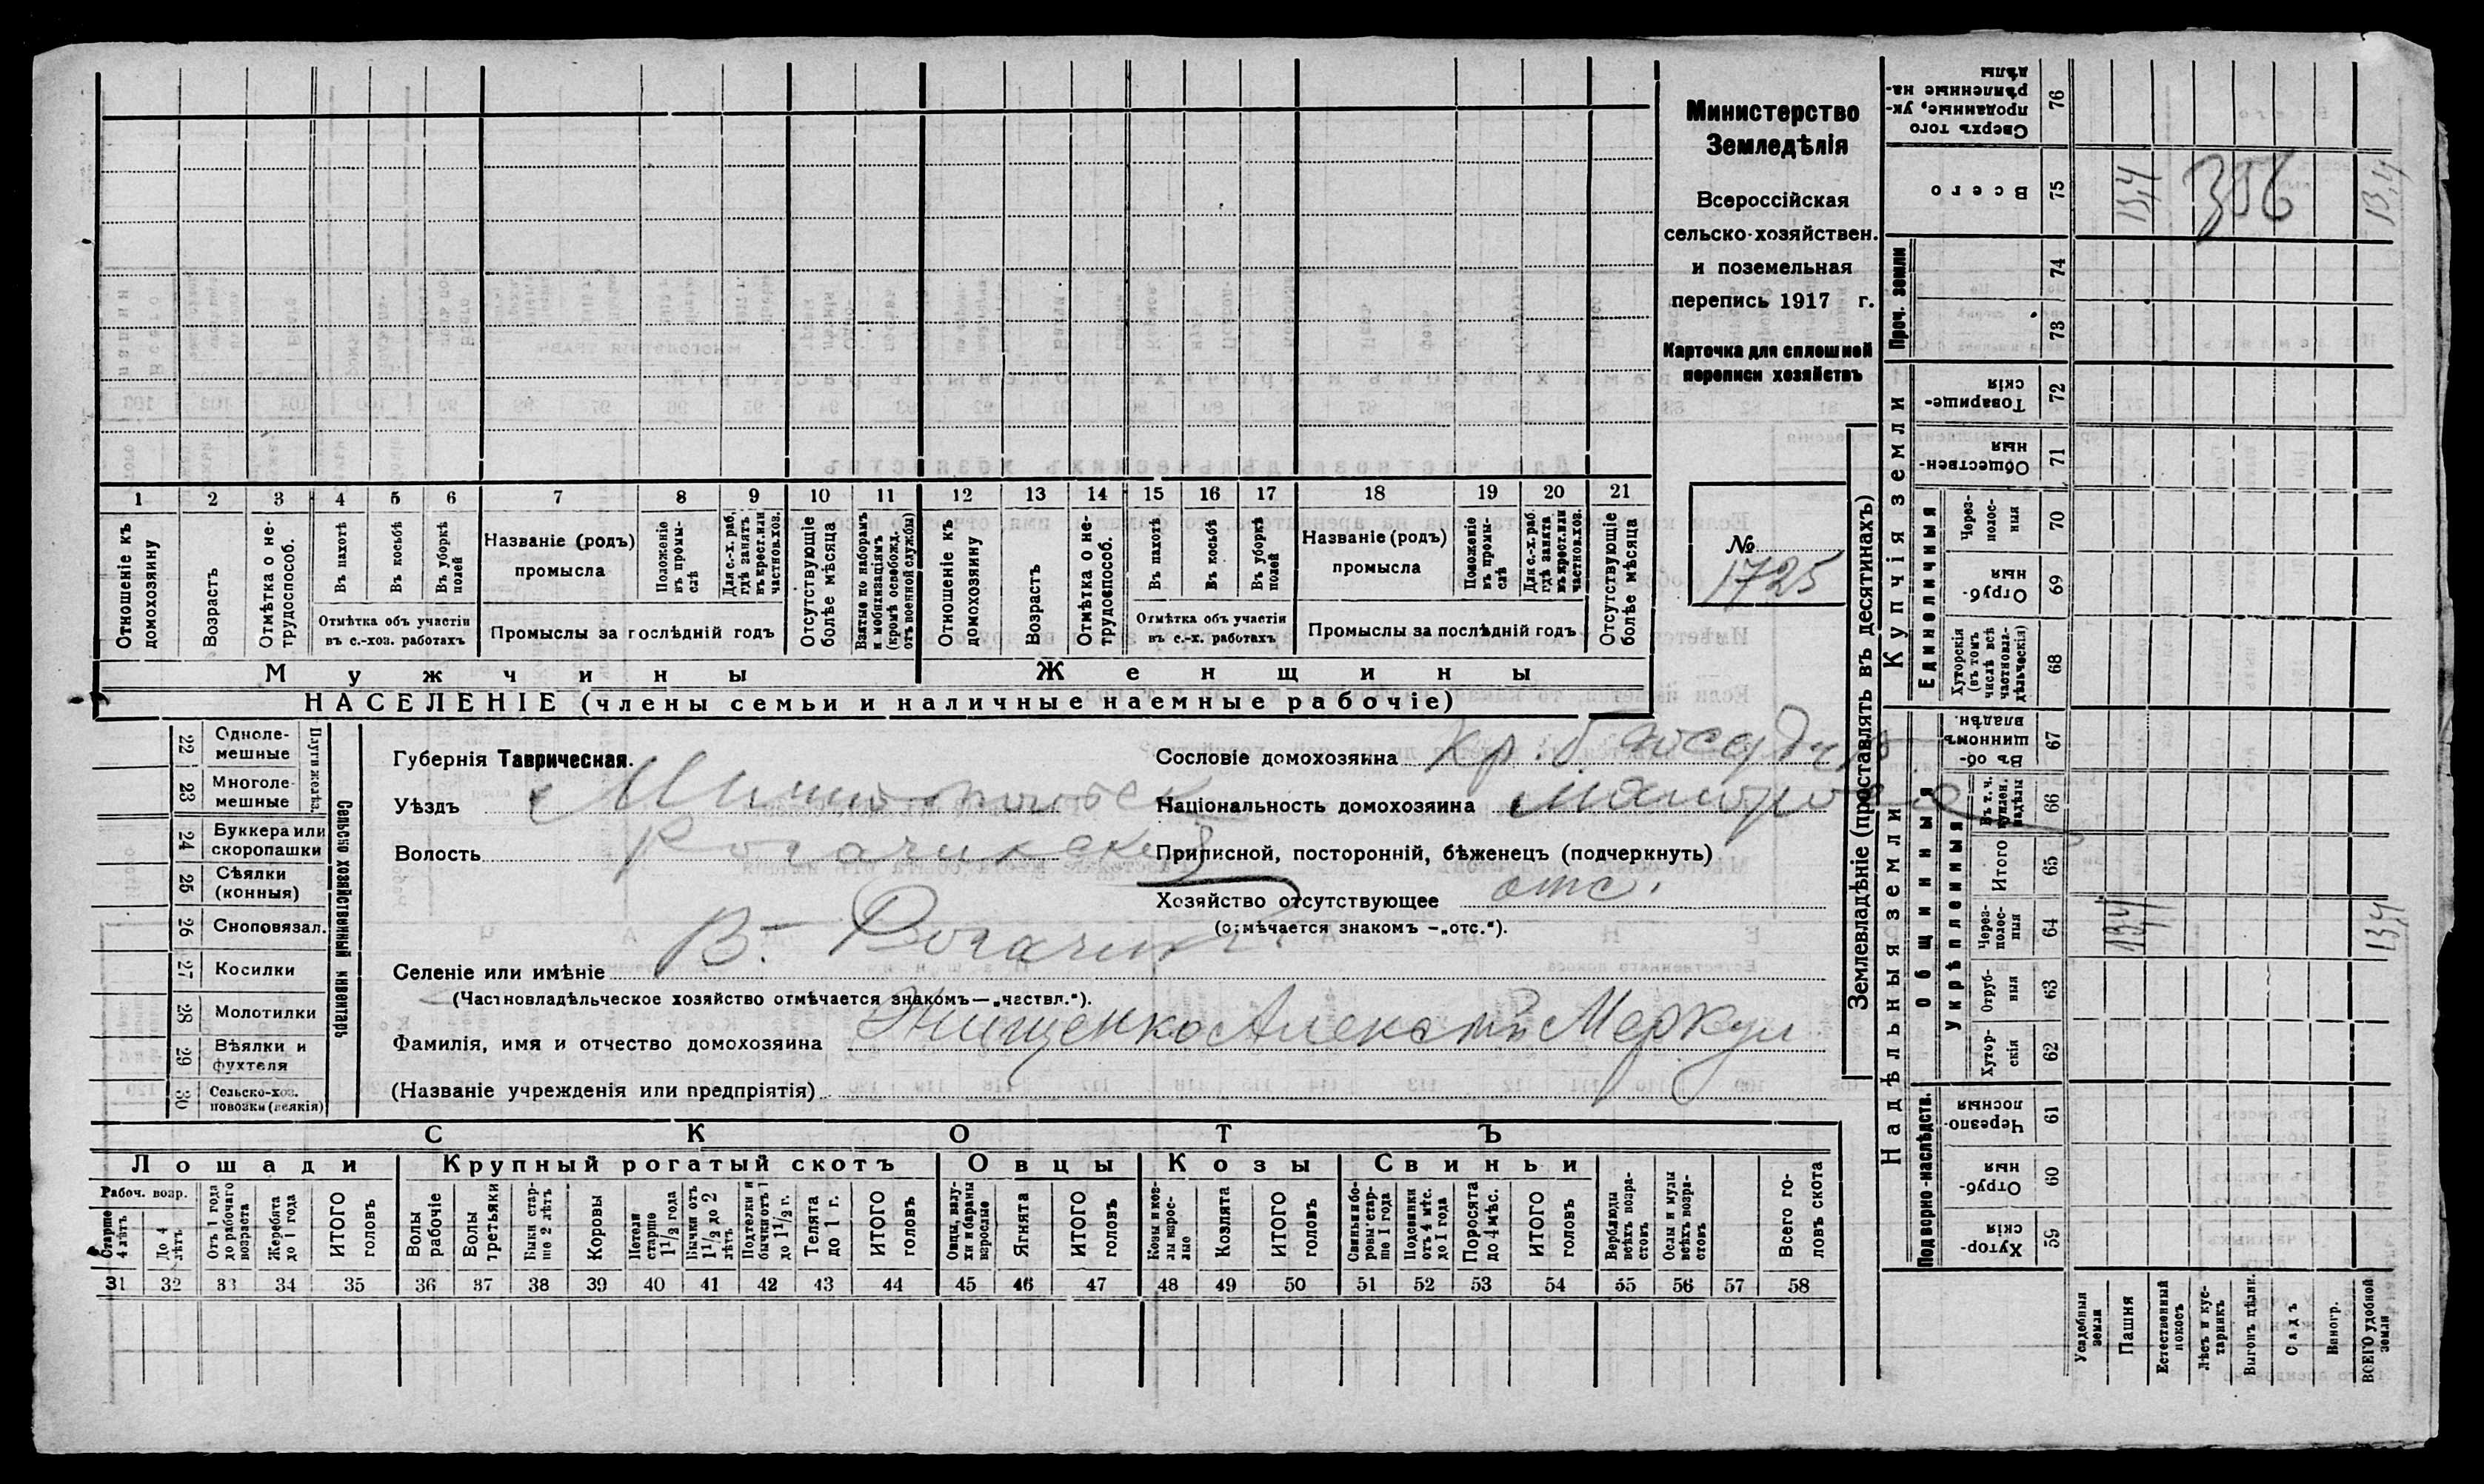 Министерство
Земледѣлія
Всероссійская
сельско-хозяйствен.
и поземельная
перепись 1917 г.
Карточка для сплошной
переписи хозяйствъ
№
1725
1 2 3 4 5 6 7 8 9 10 11 12 13 14 15 16 17 18 19 20 21
Отношеніе къ домохозяину
Возрастъ
Отмѣтка о не-трудоспособ.
Въ пахотѣ
Въ косьбѣ
Въ уборкѣ полей
Отмѣтка объ участіи
въ с.-хоз. работахъ
Названіе (родъ)
промысла
Положеніе въ промы-слѣ
Для с.-х. раб. гдѣ занятъ въ крест. или частнов. хоз.
Промыслы за послѣдній годъ
Отсутствующіе болѣе мѣсяца
Взятые по наборамъ и мобилизаціямъ (кромѣ освобожд. отъ военной службы)
Отношеніе къ домохозяину
Возрастъ
Отмѣтка о не-трудоспособ.
Въ пахотѣ
Въ косьбѣ
Въ уборкѣ полей
Отмѣтка объ участіи
въ с.-х. работахъ
Названіе (родъ)
промысла
Положеніе въ промы-слѣ
Для с.-х. раб. гдѣ занята въ крест. или частнов. хоз.
Промыслы за послѣдній годъ
Отсутствующіе болѣе мѣсяца
Мужчины
Женщины
НАСЕЛЕНІЕ (члены семьи и наличные наемные рабочіе)
Сельско хозяйственный инвентарь
22 Однолемешные
23 Многолемешные
24 Буккера или скоропашки
25 Сѣялки (конныя)
26 Сноповязал.
27 Косилки
28 Молотилки
29 Вѣялки и фухтеля
30 Сельско-хоз. повозки (всякія)
Губернія Таврическая.
Уѣздъ Мелитопольск
Волость Рогачикская
Селеніе или имѣніе В.- Рогачик
(Частновладѣльческое хозяйство отмѣчается знакомъ—„частвл.“).
Фамилія, имя и отчество домохозяина Онищенко Алексѣй Меркул
(Названіе учрежденія или предпріятія)
Сословіе домохозяина кр. б
Національность домохозяина малорос
Приписной, посторонній, бѣженецъ (подчеркнуть)
Хозяйство отсутствующее отс.
(отмѣчается знакомъ —„отс.“).
СКОТЪ
Лошади
Крупный рогатый скотъ
Овцы
Козы
Свиньи
Рабоч. возр.
Старше 4 лѣтъ
До 4 лѣтъ
Отъ 1 года до рабочаго возраста
Жеребята до 1 года
ИТОГО головъ
Волы рабочіе
Волы третьяки
Быки старше 2 лѣтъ
Коровы
Нетели старше 1½ года
Бычки отъ 1½ до 2 лѣтъ
Подтелки и бычки отъ 1 до 1½ г.
Телята до 1 г.
ИТОГО головъ
Овцы, валухи и бараны взрослые
Ягнята
ИТОГО головъ
Козы и козлы взрослые
Козлята
ИТОГО головъ
Свиньи и боровы старше 1 года
Подсвинки отъ 4 мѣс. до 1 года
Поросята до 4 мѣс.
ИТОГО головъ
Верблюды всѣхъ возрастовъ
Ослы и мулы всѣхъ возрастовъ
Всего головъ скота
31 32 33 34 35 36 37 38 39 40 41 42 43 44 45 46 47 48 49 50 51 52 53 54 55 56 57 58
Землевладѣніе (проставлять въ десятинахъ)
Купчія земли
Надѣльныя земли
Проч. земли
Единоличныя
Общинныя
Укрѣпленныя
Подворно-наслѣдств.
76 Сверхъ того проданные, укрѣпленные надѣлы
75 Всего
13,4
356
13,4
74
73
72 Товарищескія
71 Общественныя
70 Черезполосныя
69 Отрубныя
68 Хуторскія (въ томъ числѣ всѣ частновладѣльческія)
67 Въ общинномъ владѣн.
66 Въ т. ч. куплен. надѣлы
65 Итого
64 Черезполосныя
13,4
13,4
63 Отрубныя
62 Хуторскія
61 Черезполосныя
60 Отрубныя
59 Хуторскія
Усадебныя земли
Пашня
Естественный покосъ
Лѣсъ и кустарникъ
Выгонъ цѣлин.
Садъ
Виногр.
ВСЕГО удобной земли